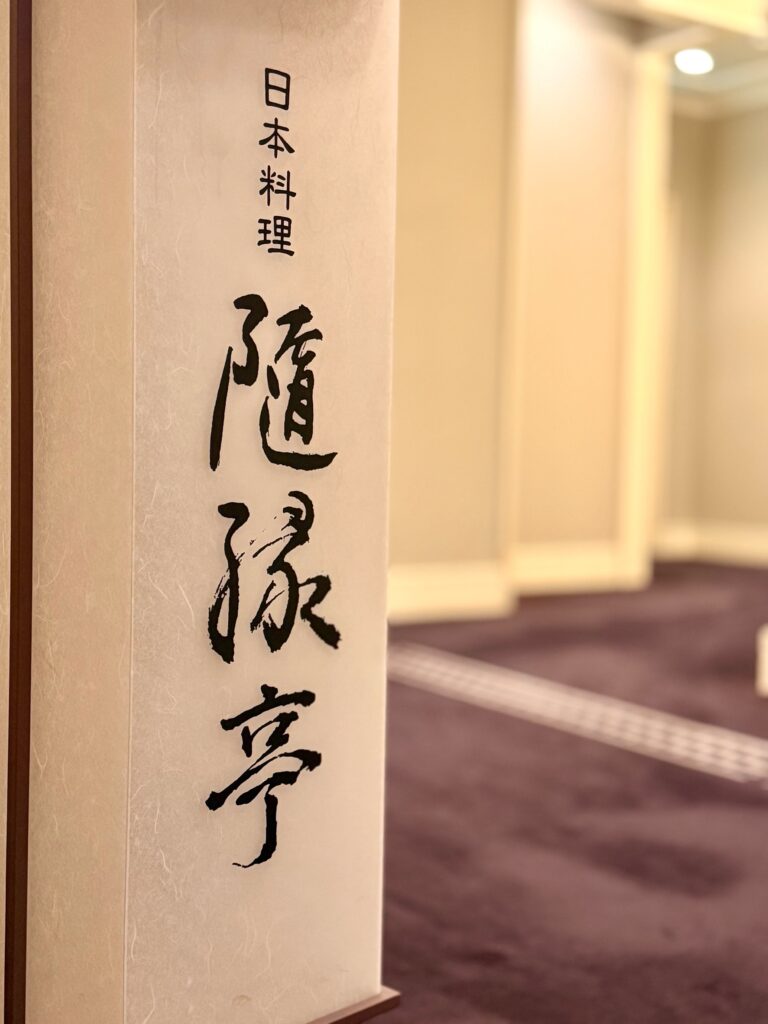 日本料理
隨縁亭